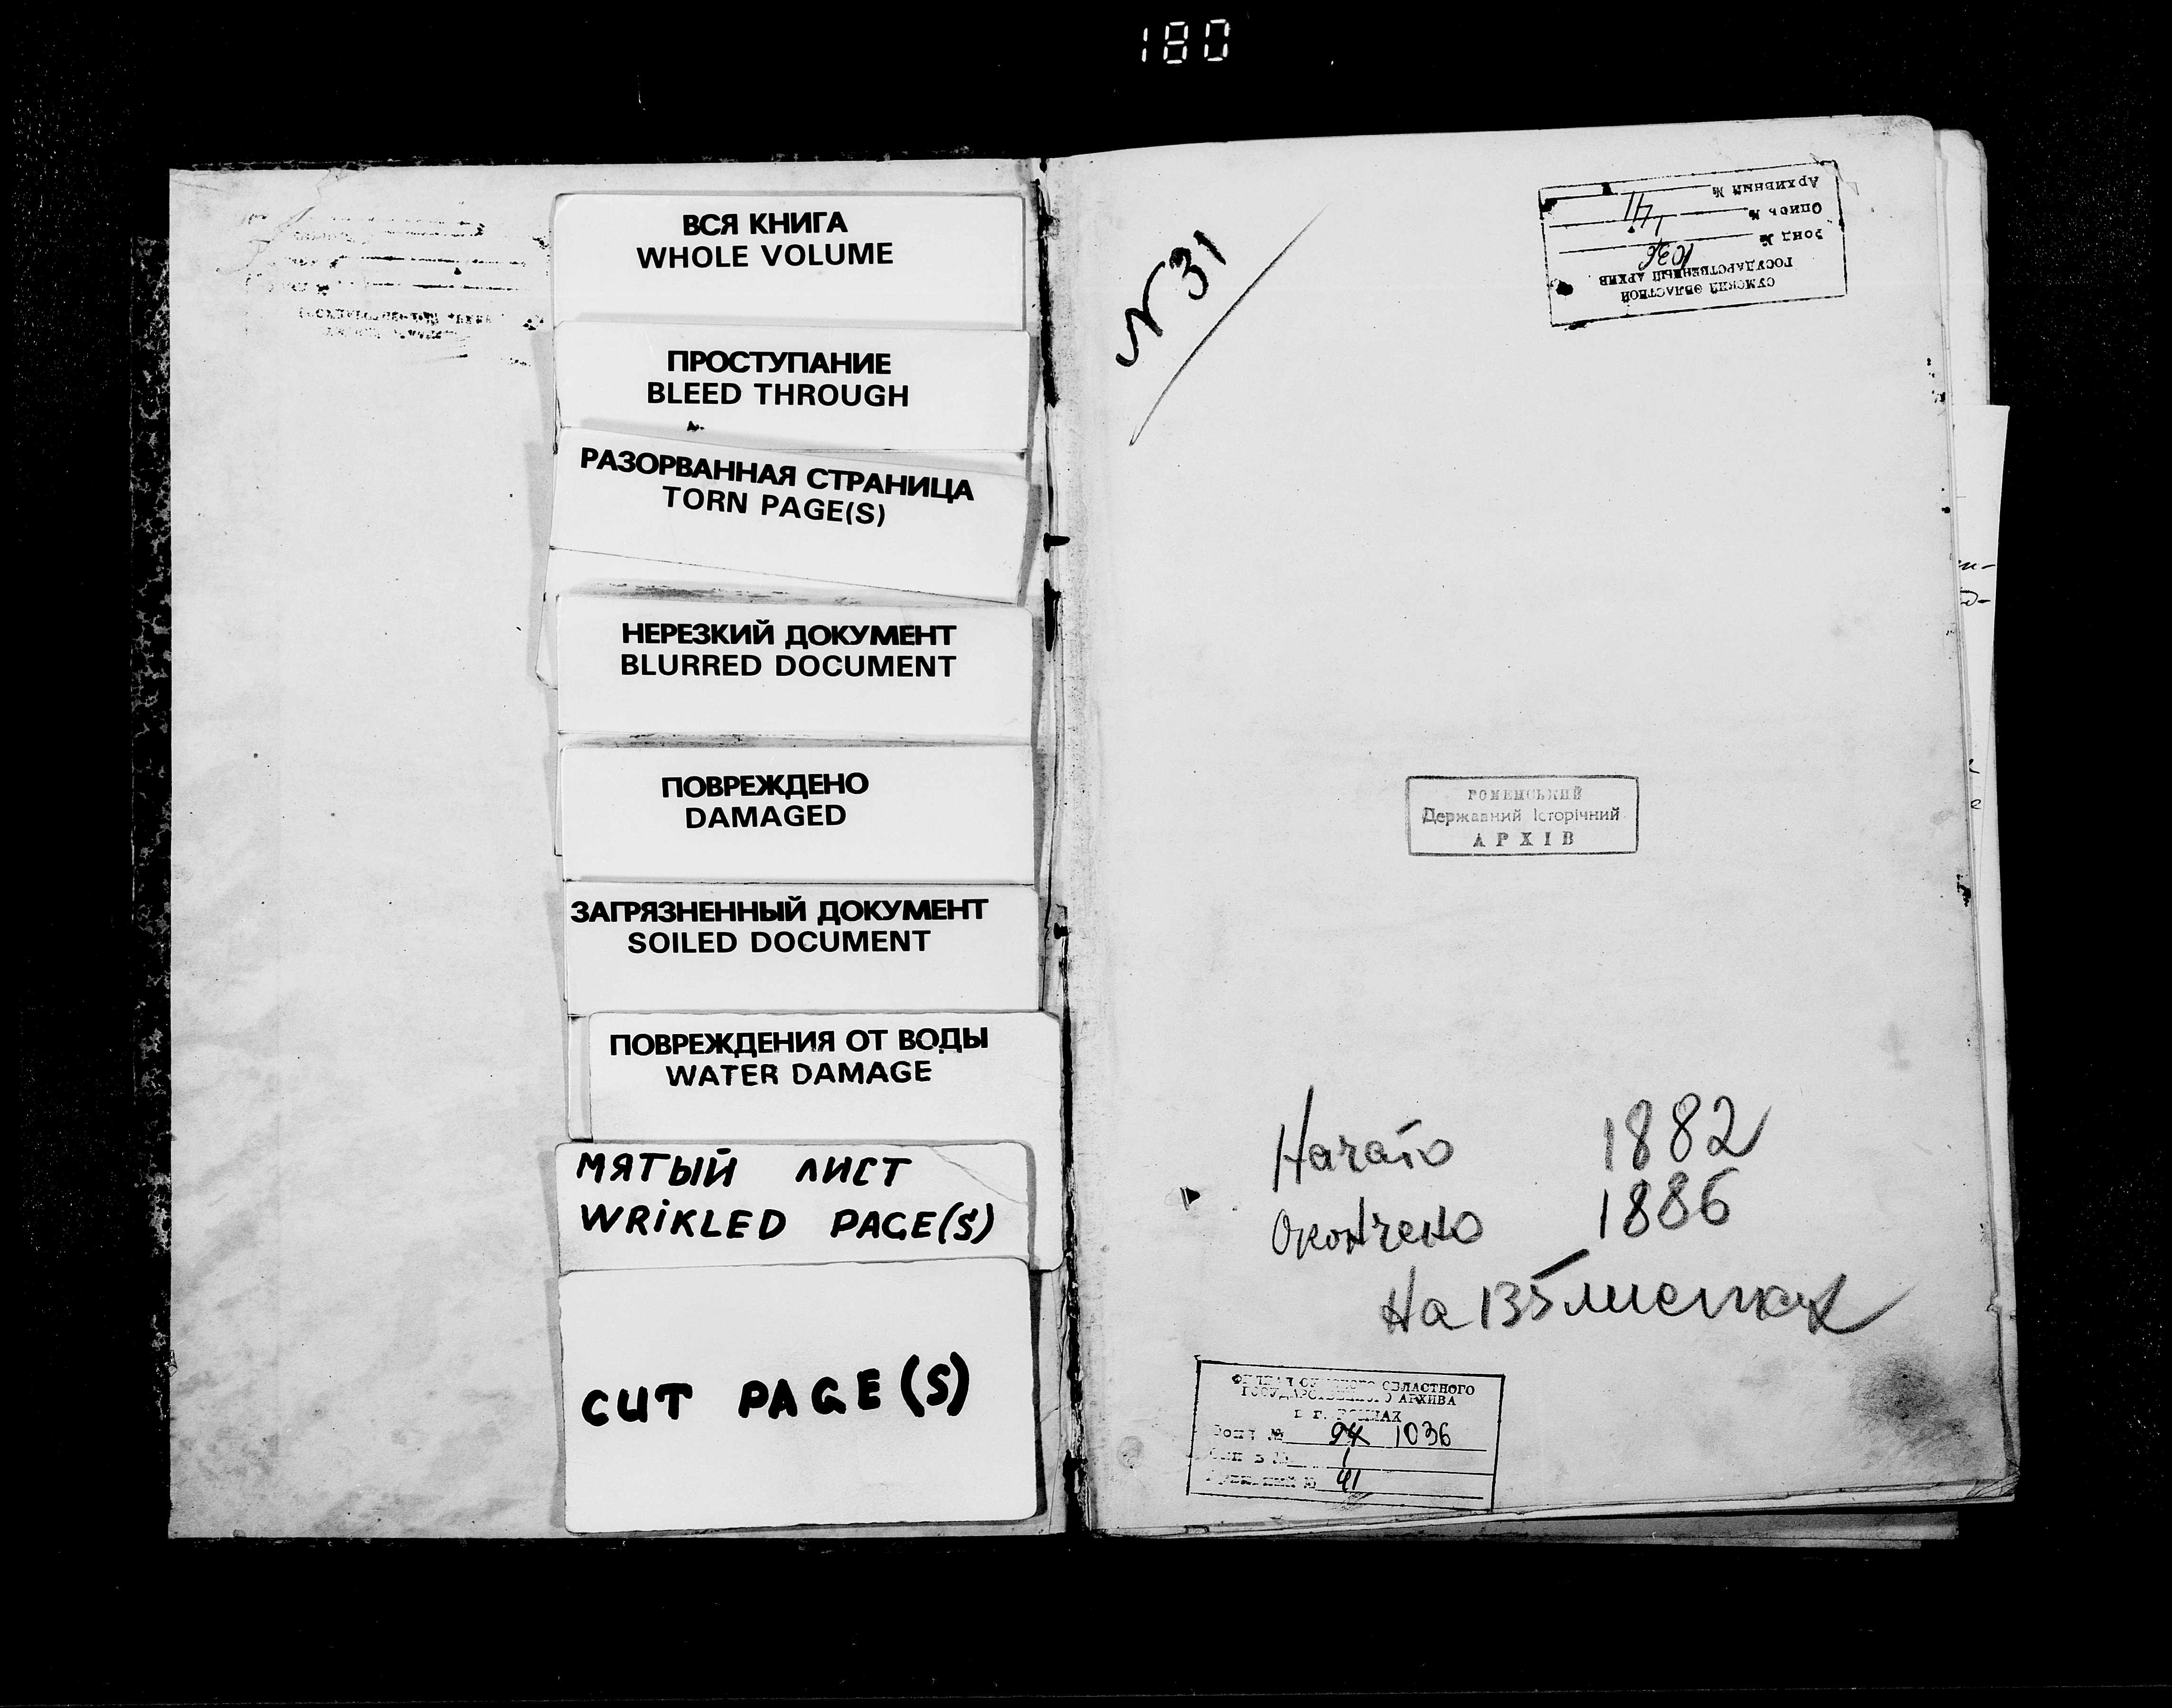 180
ВСЯ КНИГА
WHOLE VOLUME
ПРОСТУПАНИЕ
BLEED THROUGH
РАЗОРВАННАЯ СТРАНИЦА
TORN PAGE(S)
НЕРЕЗКИЙ ДОКУМЕНТ
BLURRED DOCUMENT
ПОВРЕЖДЕНО
DAMAGED
ЗАГРЯЗНЕННЫЙ ДОКУМЕНТ
SOILED DOCUMENT
ПОВРЕЖДЕНИЯ ОТ ВОДЫ
WATER DAMAGE
МЯТЫЙ ЛИСТ
WRIKLED PAGE(S)
CUT PAGE(S)
N 31
СУМСКИЙ ОБЛАСТНОЙ
ГОСУДАРСТВЕННЫЙ АРХИВ
Фонд № 1036
Опись № 1
Архивный № 41
РОМЕНСЬКИЙ
Державний Історічний
АРХІВ
Начато 1882
Окончено 1886
На 135 листах
ФИЛИАЛ СУМСКОГО ОБЛАСТНОГО
ГОСУДАРСТВЕННОГО АРХИВА
в г. РОМНАХ
Фонд № 94 1036
Опись № 1
Архивный № 41